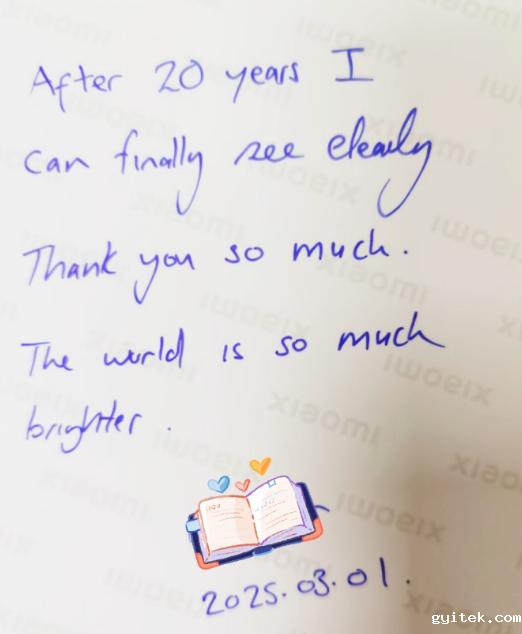 After 20 years I
can finally see clearly
Thank you so much.
The world is so much
brighter.
2025.03.01.
gyitek.com